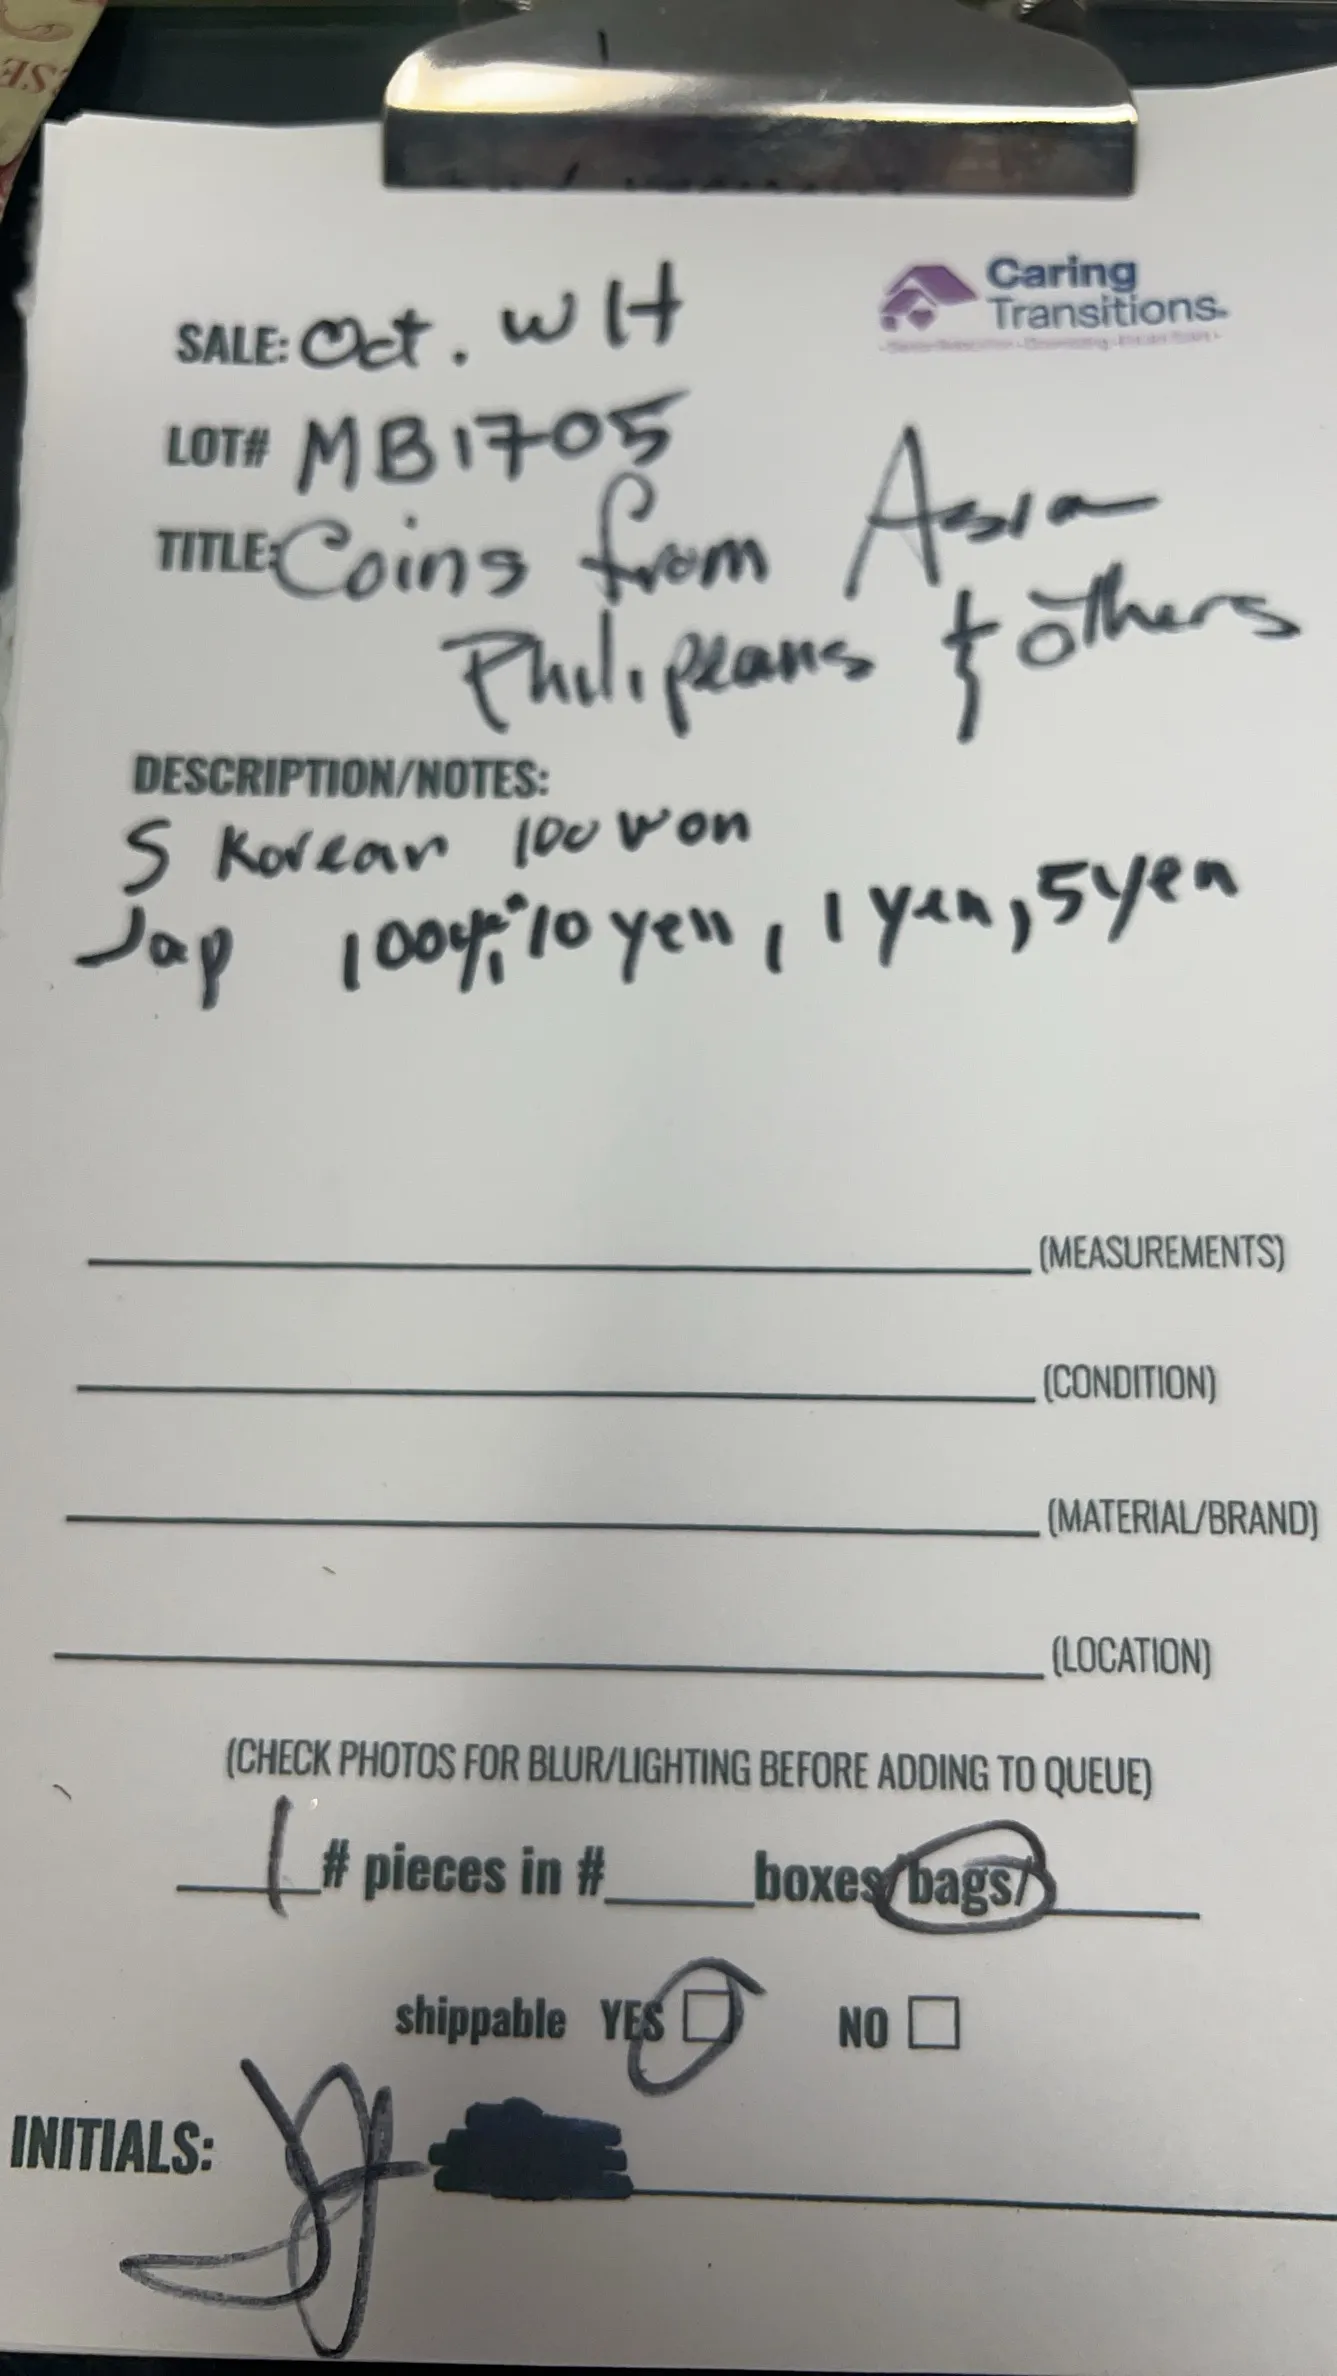 ESE
Caring
Transitions
SALE: Oct. WH
LOT# MB1705
TITLE: Coins from Asia
Philipeans & others
DESCRIPTION/NOTES:
S Korean 100 won
Jap 100y, 10 yen, 1 yen, 5 yen
(MEASUREMENTS)
(CONDITION)
(MATERIAL/BRAND)
(LOCATION)
(CHECK PHOTOS FOR BLUR/LIGHTING BEFORE ADDING TO QUEUE)
1 # pieces in # boxes/bags/
shippable YES NO
INITIALS: